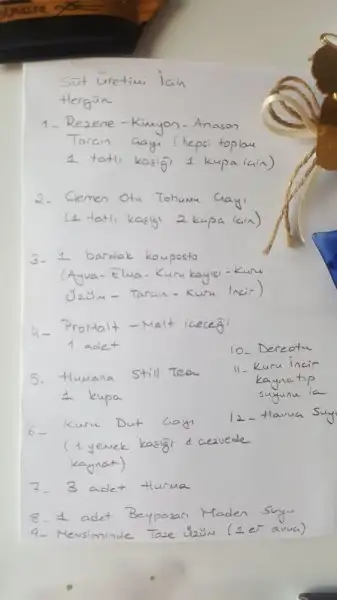 Süt üretimi İçin
Hergün
1- Rezene - Kimyon - Anason
Tarçın Çayı (hepsi toplam
1 tatlı kaşığı 1 kupa için)
2- Çemen Otu Tohumu Çayı
(1 tatlı kaşığı 2 kupa için)
3- 1 bardak komposto
(Ayva - Elma - Kuru kayısı - Kuru
Üzüm - Tarçın - Kuru İncir)
4- Promalt - Malt içeceği
1 adet
5- Humana Still Tea
1 kupa
6- Kuru Dut Çayı
(1 yemek kaşığı 1 cezvede
kaynat)
7- 3 adet Hurma
8- 1 adet Beypazarı Maden Suyu
9- Mevsiminde Taze üzüm (1 el avucu)
10- Dereotu
11- Kuru İncir
kaynatıp
suyunu iç
12- Havuç Suyu